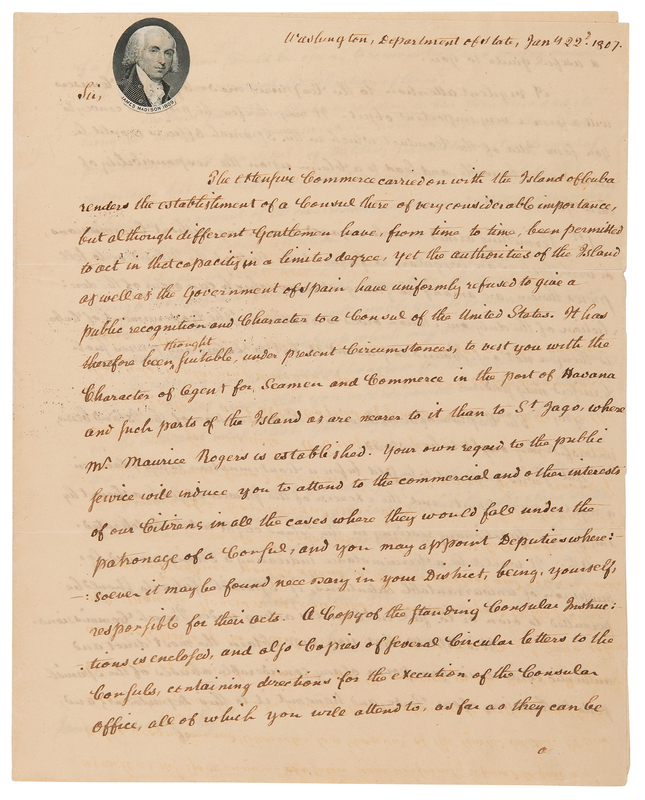 Washington, Department of State, Jany 22d. 1807.
JAMES MADISON 1809
Sir,
The extensive Commerce carried on with the Island of Cuba
renders the establishment of a Consul there of very considerable importance,
but although different Gentlemen have, from time to time, been permitted
to act in that capacity in a limited degree, yet the authorities of the Island
as well as the Government of Spain have uniformly refused to give a
public recognition and Character to a Consul of the United States. It has
thought
therefore been suitable, under present Circumstances, to vest you with the
Character of Agent for Seamen and Commerce in the port of Havana
and such parts of the Island as are nearer to it than to St Jago, where
Mr. Maurice Rogers is established. Your own regard to the public
service will induce you to attend to the commercial and other interests
of our Citizens in all the cases where they would fall under the
patronage of a Consul, and you may appoint Deputies where:-
-:soever it may be found necessary in your District, being, yourself,
responsible for their acts. A Copy of the standing Consular Instruc:-
-tions is enclosed, and also Copies of several Circular letters to the
Consuls, containing directions for the execution of the Consular
Office, all of which you will attend to, as far as they can be